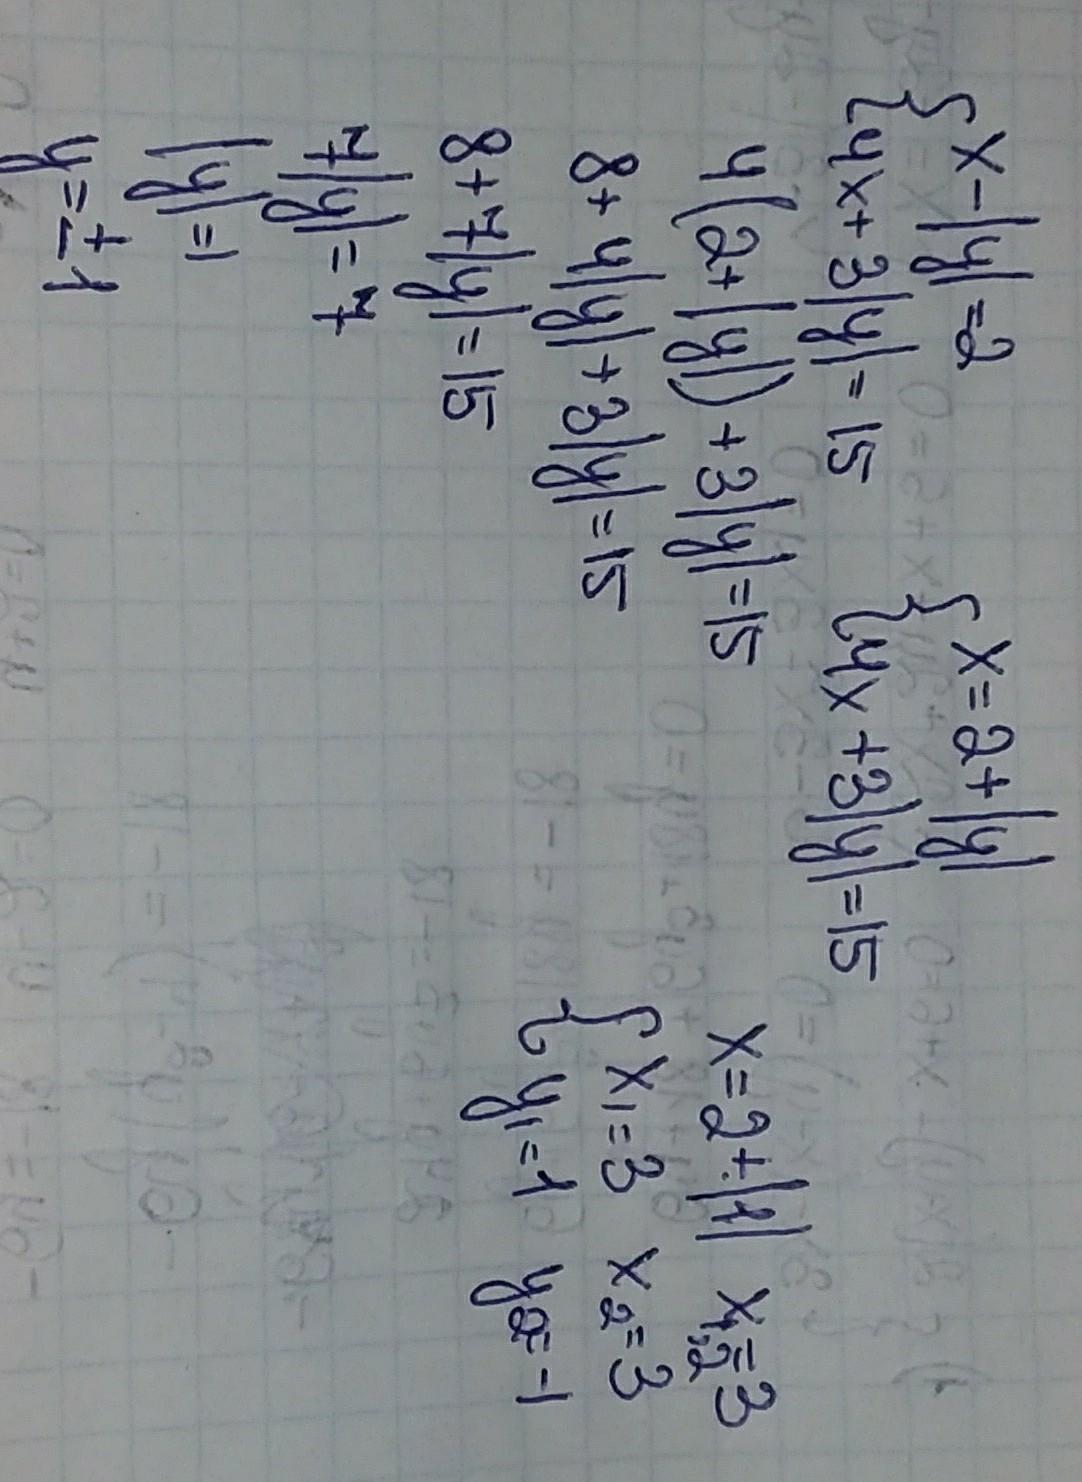 { x - |y| = 2
{ 4x + 3|y| = 15
{ x = 2 + |y|
{ 4x + 3|y| = 15
4(2 + |y|) + 3|y| = 15
8 + 4|y| + 3|y| = 15
8 + 7|y| = 15
7|y| = 7
|y| = 1
y = ±1
x = 2 + |1| x₁,₂ = 3
{ x₁ = 3 x₂ = 3
{ y₁ = 1 y₂ = -1